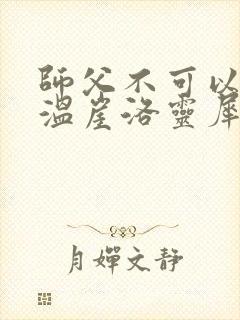 師父不可以
溫崖洛靈犀
月嬋文靜